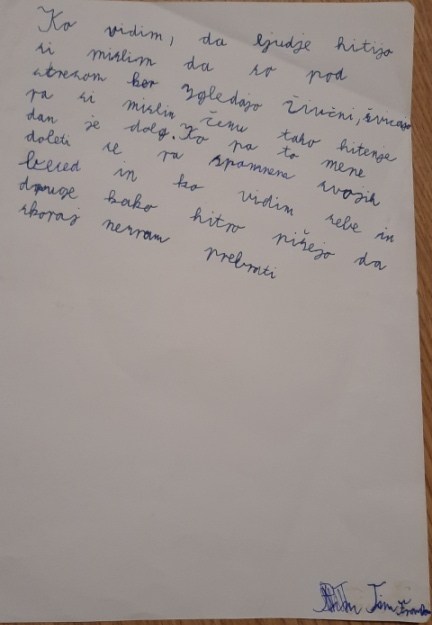 Ko vidim, da ljudje hitijo
si mislim da so pod
stresom ker zgledajo živčni,
pa si mislim čemu tako hitenje
dan je dolg. Ko pa to mene
doleti se pa spomnem svojih
besed in ko vidim sebe in
druge kako hitro pišejo da
skoraj nesram prebrati
Tim